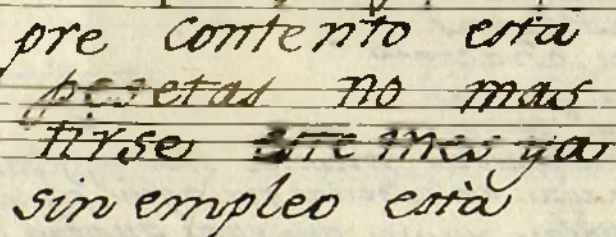 pre contento està
pesetas no mas
tirse este mes ya
sin empleo està